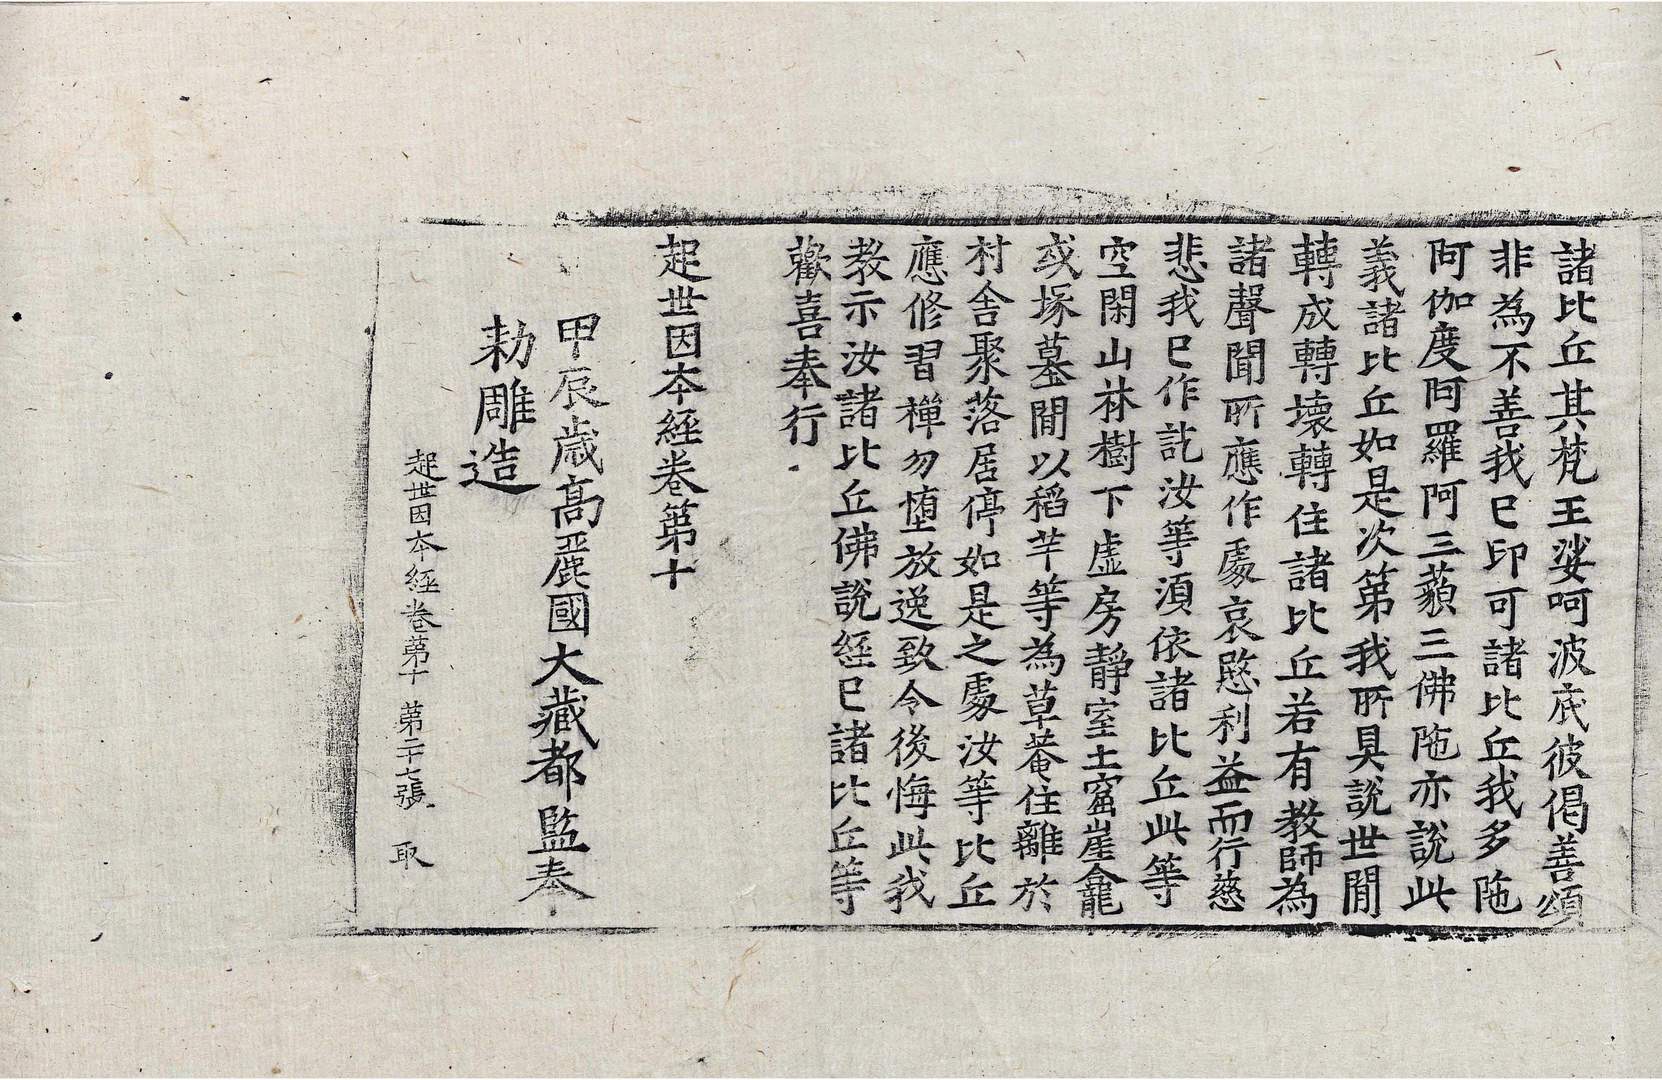 諸比丘其梵王娑呵波底彼偈善頌
非為不善我已印可諸比丘我多陁
阿伽度阿羅阿三藐三佛陁亦說此
義諸比丘如是次第我所具說世間
轉成轉壞轉住諸比丘若有教師為
諸聲聞所應作處哀愍利益而行慈
悲我已作訖汝等須依諸比丘此等
空閑山林樹下虛房靜室土窟崖龕
或塚墓間以稻芉等為草菴住離於
村舍聚落居停如是之處汝等比丘
應修習禪勿墮放逸致令後悔此我
教示汝諸比丘佛說經已諸比丘等
歡喜奉行
起世因本經卷第十
甲辰歲高麗國大藏都監奉
勅雕造
起世因本經卷第十 第二十七張 取